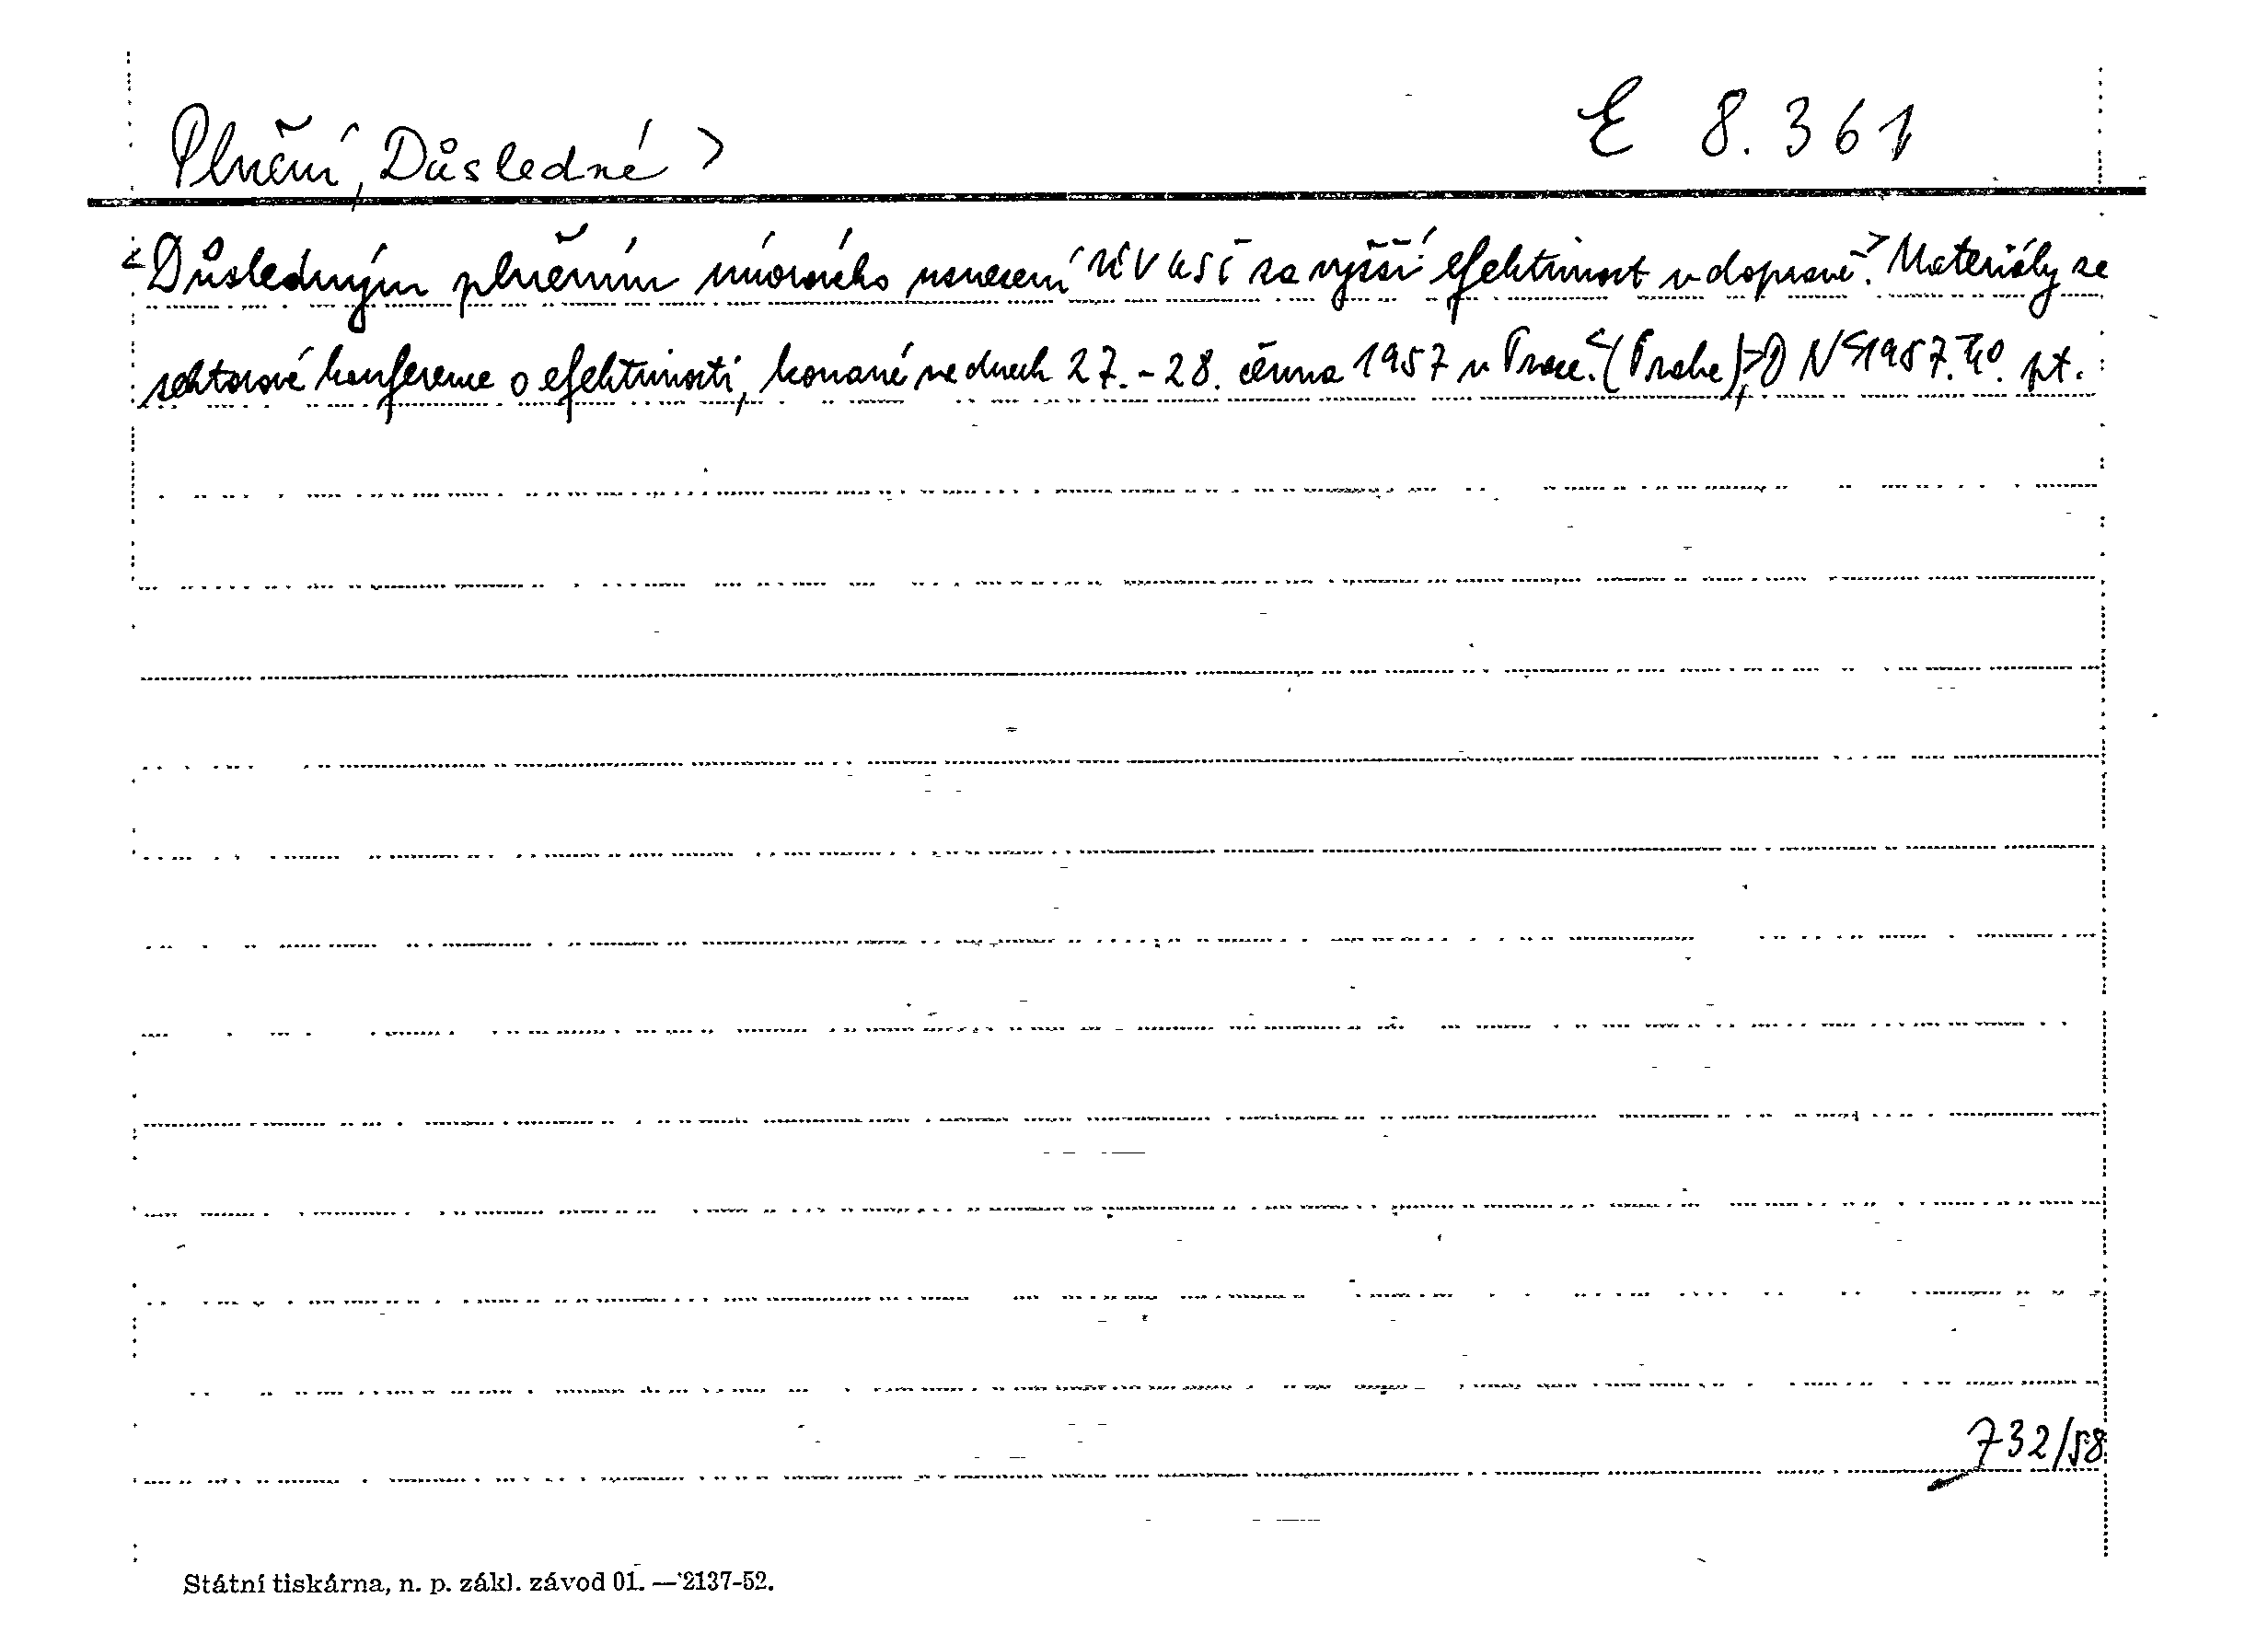 Plnění, Důsledné > E 8.361
<Důsledným plněním únorového usnesení ÚV KSČ za vyšší efektivnost v dopravě.> Materiály ze
sektorové konference o efektivnosti, konané ve dnech 27.-28. června 1957 v Praze. (Praha), 1957. 40. pt.
732/58
Státní tiskárna, n. p. zákl. závod 01. — 2137-52.